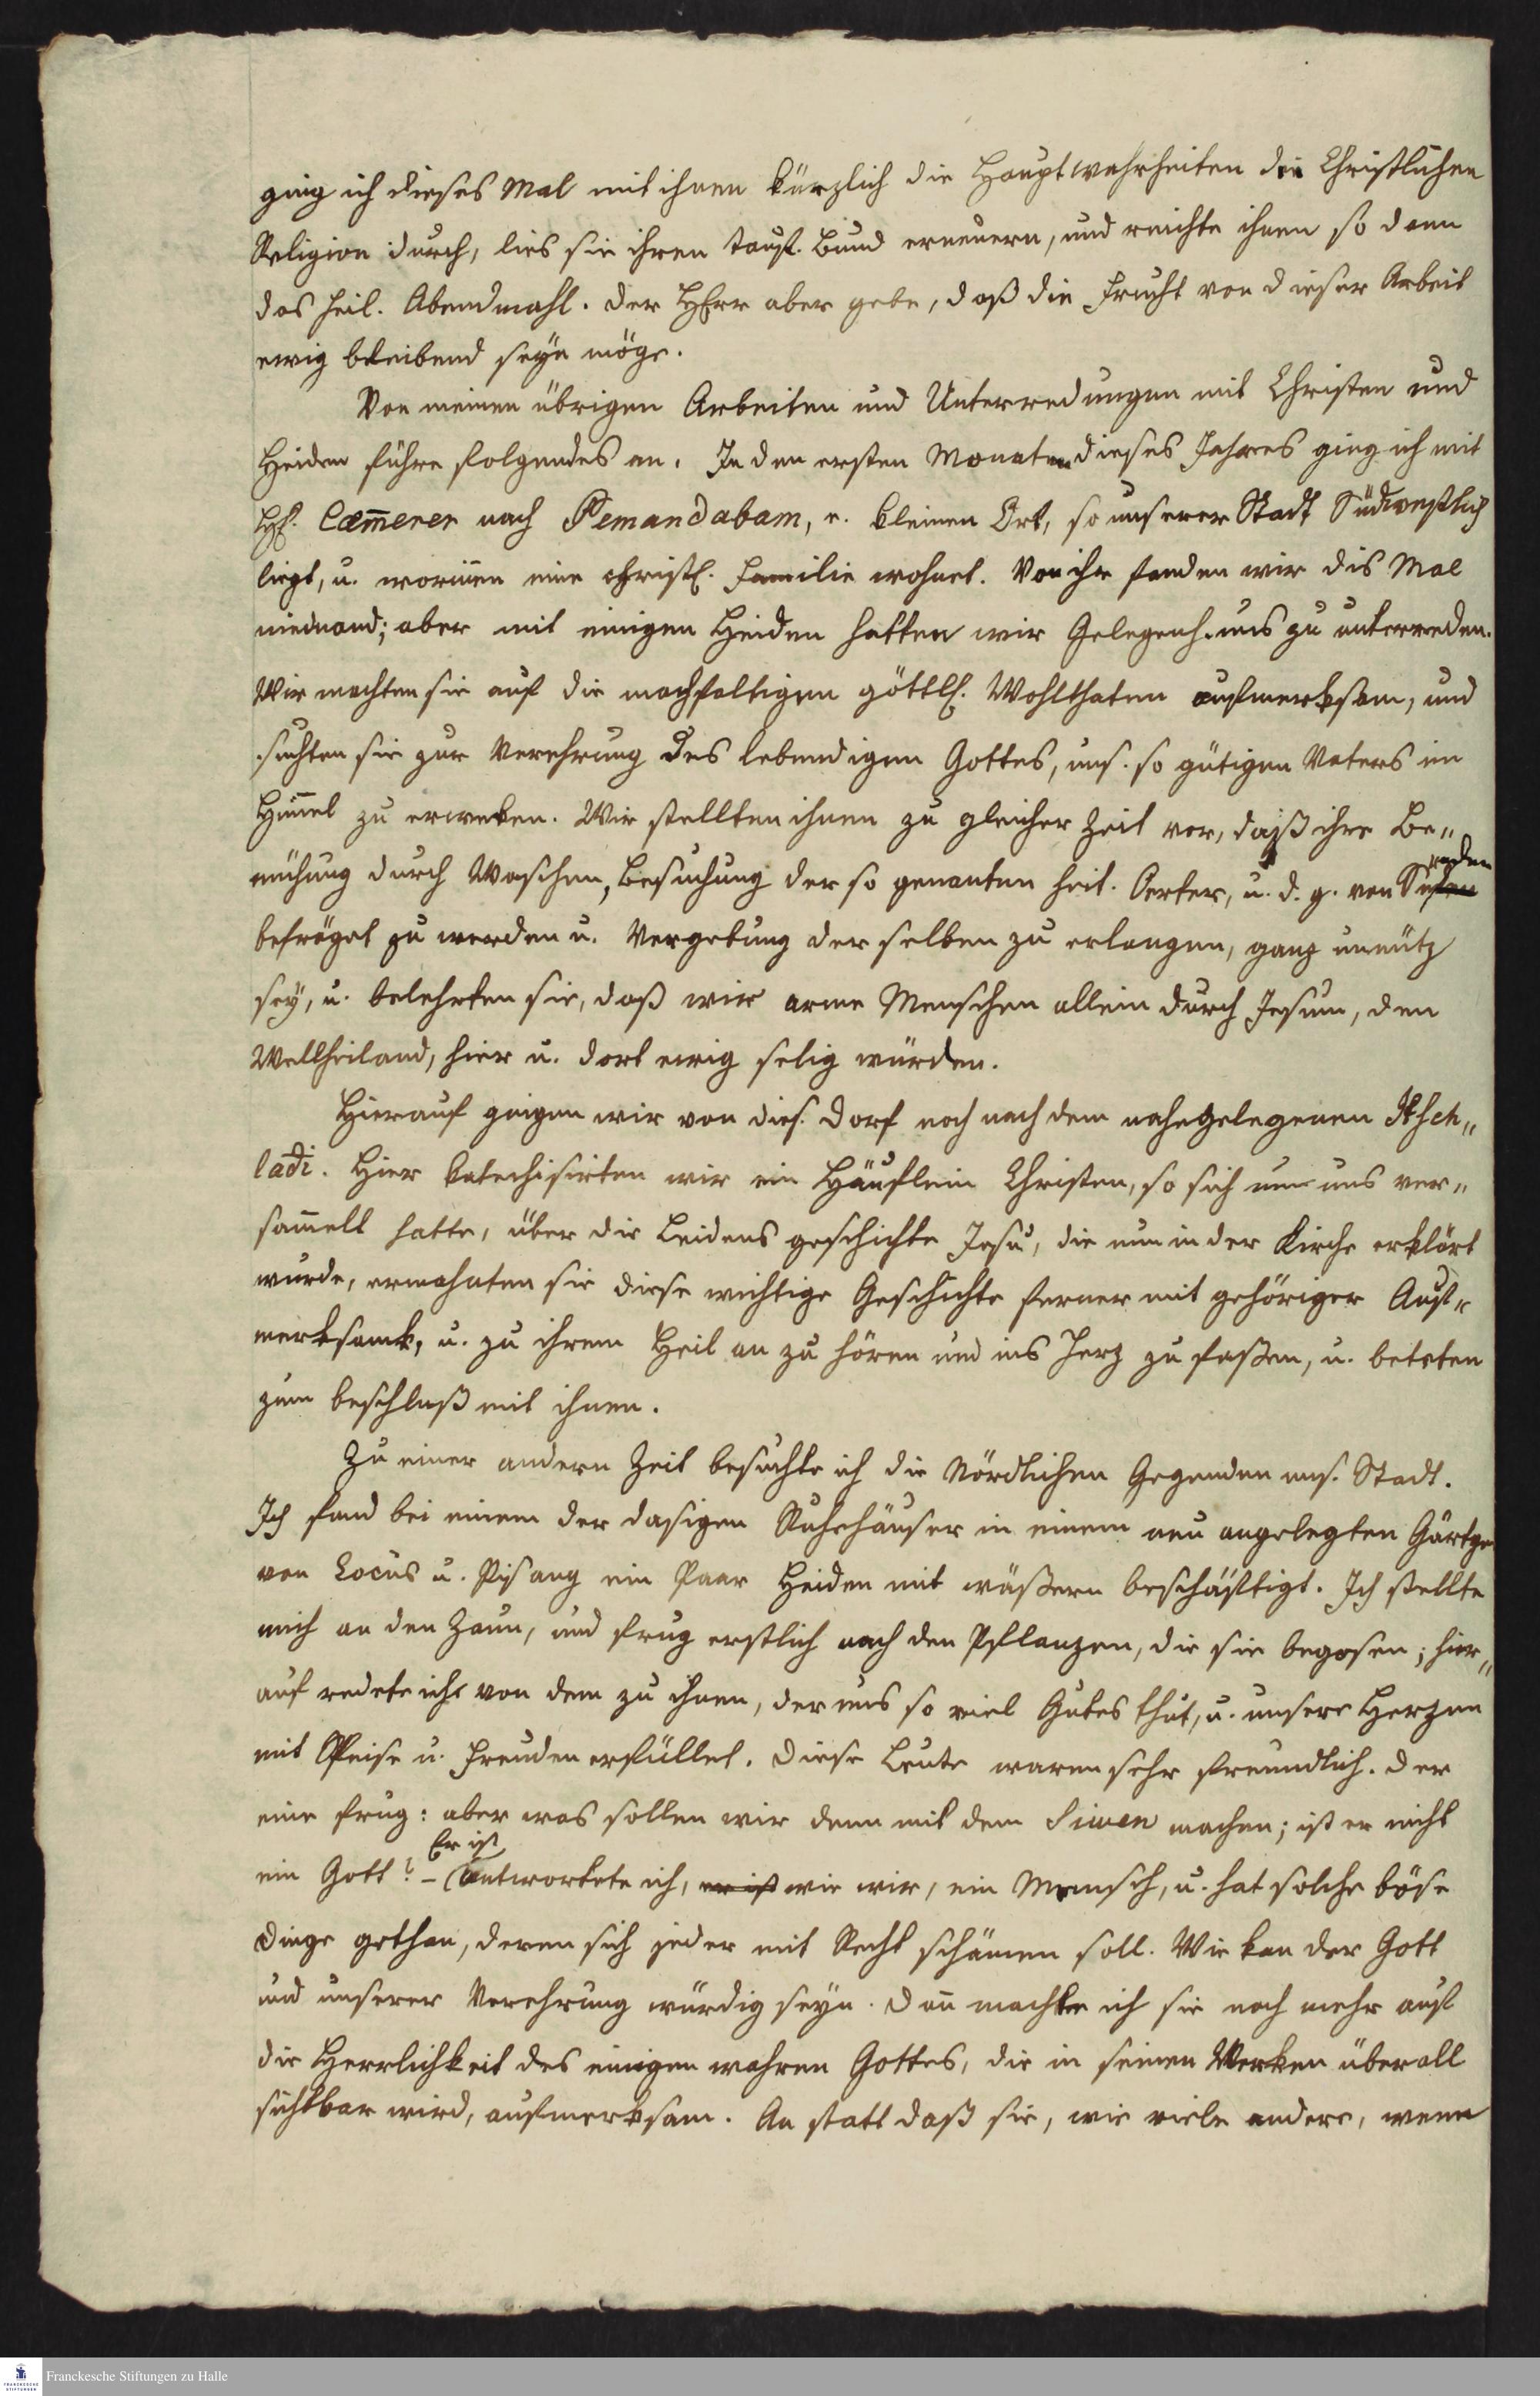 ging ich dieses Mal mit ihnen kürzlich die Hauptwahrheiten die Christlichen
Religion durch, lies sie ihren Tauf-Bund erneuern, und reichte ihnen so dann
das heil. Abendmahl. Der HErr aber gebe, daß die Frucht von dieser Arbeit
ewig bleibend seyn möge.
Von meinen übrigen Arbeiten und Unterredungen mit Christen und
Heiden führe folgendes an. In den ersten Monaten dieses Jahres ging ich mit
H. Cæm̄erer nach Pemandabam, e. kleinen Ort, so unserer Stadt Südwestlich
liegt, u. worinnen eine christl. Familie wohnet. Von ihr fanden wir dis Mal
niemand; aber mit einigen Heiden hatten wir Gelegenh. uns zu unterreden.
Wir machten sie auf die manchfaltigen göttl. Wohlthaten aufmerksam, und
suchten sie zur Verehrung des lebendigen Gottes, uns. so gütigen Vaters im
Him̄el zu erweken. Wir stellten ihnen zu gleicher Zeit vor, daß ihre Be„
mühung durch Waschen, Besuchung der so genanten heil. Oerter, u. d. g. von Sünden
befreyet zu werden u. Vergebung derselben zu erlangen, ganz unnütz
sey, u. belehrten sie, daß wir arme Menschen allein durch Jesum, den
Weltheiland, hier u. dort ewig selig würden.
Hierauf gingen wir von dies. Dorf noch nach dem nahegelegenen
ladi. Hier katechisirten wir ein Häuflein Christen, so sich um uns ver„
sam̄elt hatte, über die Leidens geschichte Jesu, die nun in der Kirche erklärt
wurde, ermahnten sie diese wichtige Geschichte ferner mit gehöriger Auf„
merksamk. u. zu ihrem Heil an zu hören und ins Herz zu faßen, u. beteten
zum beschluß mit ihnen.
Zu einer andern Zeit besuchte ich die Nördlichen Gegenden uns. Stadt.
Ich fand bei einem der dasigen Ruhehäuser in einem neu angelegten Gärtgen
von Cocus u. Pisang ein Paar Heiden mit wäßern beschäftigt. Ich stellte
mich an den Zaun, und frug erstlich nach den Pflanzen, die sie begosen; hier„
auf redete ich von dem zu ihnen, der uns so viel Gutes thut, u. unsere Herzen
mit Speise u. Freuden erfüllet. Diese Leute waren sehr freundlich. Der
eine frug: aber was sollen wir denn mit dem Siwen machen; ist er nicht
Er ist
ein Gott? – (antwortete ich, er ist wie wir, ein Mensch, u. hat solche böse
Dinge gethan, deren sich jeder mit Recht schämen soll. Wie kan der Gott
und unserer Verehrung würdig seyn. Dan̄ machte ich sie noch mehr auf
die Herrlichkeit des einigen wahren Gottes, die in seinen Werken überall
sichtbar wird, aufmerksam. An statt daß sie, wie viele andere, wenn
Franckesche Stiftungen zu Halle